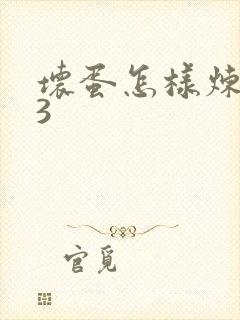 壞蛋怎樣煉
3
官覓